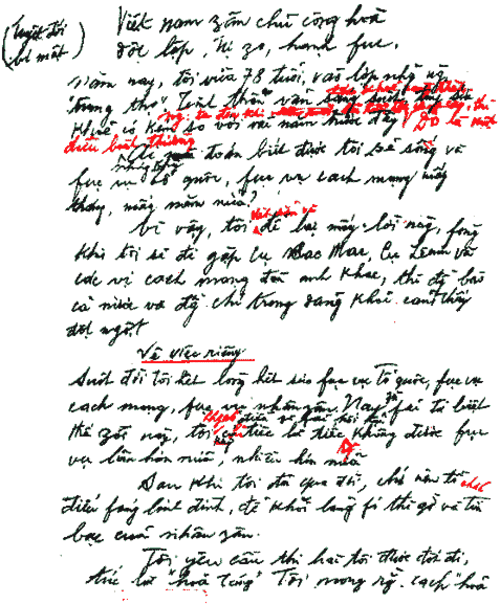 (Tuyệt đối
bí mật)
Việt nam zân chủ cộng hoà
Độc lập, tự zo, hạnh fúc.
Năm nay, tôi vừa 78 tuổi, vào lớp những ng
"trung thọ". Tinh thần vẫn sáng suốt
Khoẻ có kém so với vài năm trước đây. Đó là một
điều bình thường
Nhưng ai mà đoán biết được tôi sẽ sống và
fục vụ tổ quốc, fục vụ cách mạng mấy
tháng, mấy năm nữa?
Vì vậy, tôi để lại mấy lời này, fòng
Khi tôi sẽ đi gặp cụ Các Mác, Cụ Lênin và
các vị cách mạng đàn anh khác, thì đồng bào
cả nước và đồng chí trong đảng khỏi cảm thấy
đột ngột.
Về việc riêng
Suốt đời tôi hết lòng hết sức fục vụ Tổ quốc, fục vụ
cách mạng, fục vụ nhân zân. Nay zù fải từ biệt
thế zới này, tôi chỉ tiếc là tiếc không được fục
vụ lâu hơn nữa, nhiều hơn nữa
Sau khi tôi đã qua đời, chớ nên tổ chức
điếu fúng linh đình, để khỏi lãng fí thì giờ và tiền
bạc của nhân zân.
Tôi yêu cầu thi hài tôi được đốt đi,
tức là "hoả táng" Tôi mong rằng cách "hoả